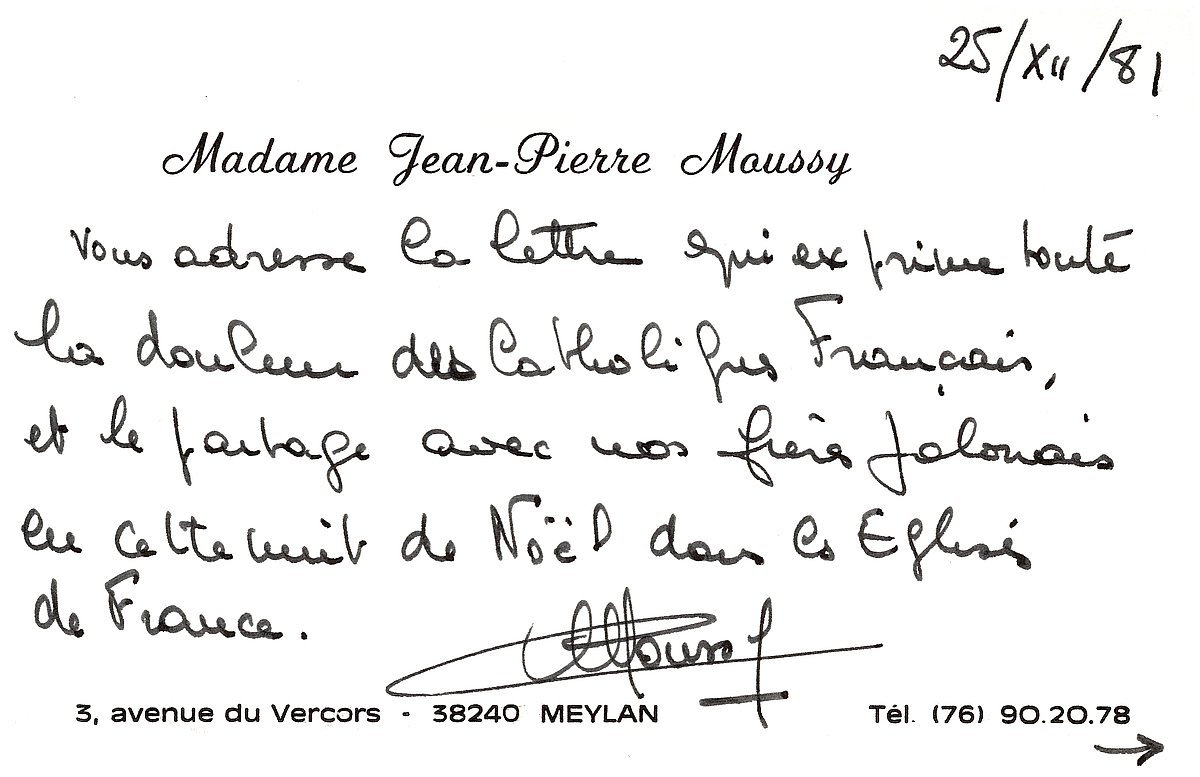 25/XII/81
Madame Jean-Pierre Moussy
vous adresse la lettre qui exprime toute
la douleur des Catholiques Français,
et le partage avec nos frères polonais
en cette nuit de Noël dans les Eglises
de France.
Moussy
3, avenue du Vercors - 38240 MEYLAN Tél. (76) 90.20.78
→